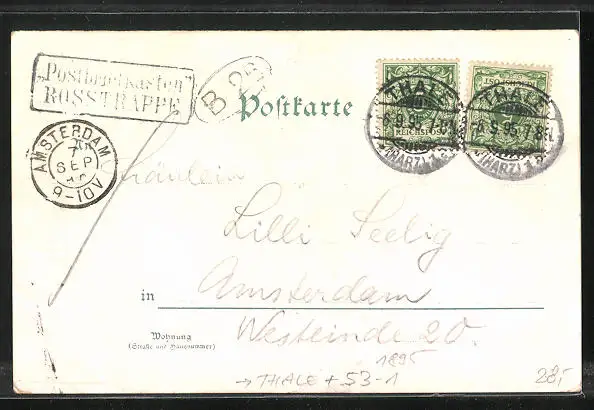 „Postbriefkasten"
ROSSTRAPPE
B
Postkarte
THALE
6.9.95.7-8N.
(HARZ) 1
REICHSPOST
THALE
6.9.95.7-8N.
(HARZ) 1
AMSTERDAM
7
SEP
9-10V
Fräulein
Lilli Seelig
in Amsterdam
Wohnung
(Straße und Hausnummer)
Westeinde 20.
1895
→ THALE + 53-1
28,-